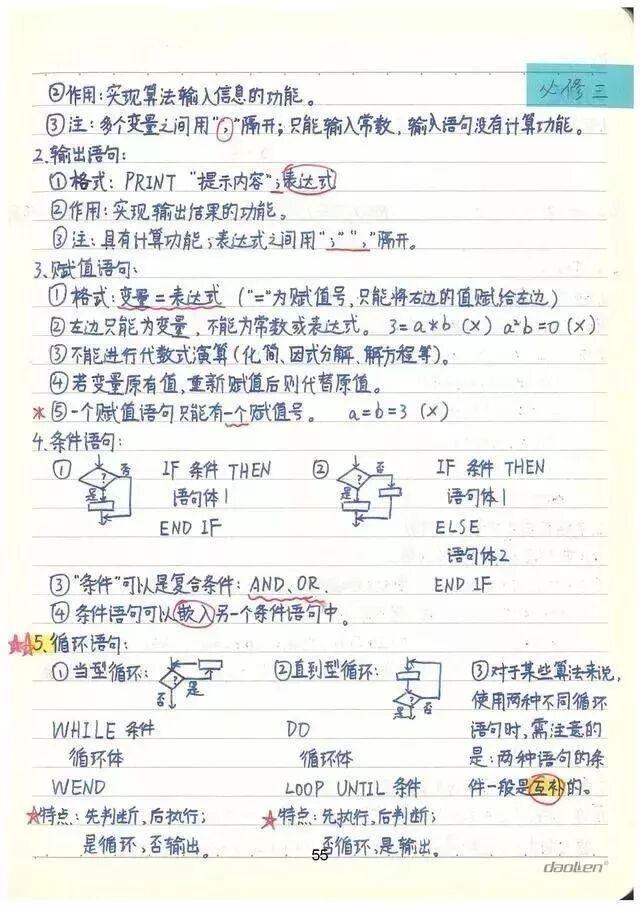 必修三
②作用:实现算法输入信息的功能。
③注:多个变量之间用","隔开;只能输入常数,输入语句没有计算功能。
2.输出语句:
①格式:PRINT "提示内容";表达式
②作用:实现输出结果的功能。
③注:具有计算功能;表达式之间用";"","隔开。
3.赋值语句:
①格式:变量=表达式 ("="为赋值号,只能将右边的值赋给左边)
②左边只能为变量,不能为常数或表达式。 3=a*b (X) a²b=0 (X)
③不能进行代数式演算(化简、因式分解、解方程等)。
④若变量原有值,重新赋值后则代替原值。
*⑤一个赋值语句只能有一个赋值号。 a=b=3 (X)
4.条件语句:
① ? 否 是
IF 条件 THEN
语句体1
END IF
② ? 否 是
IF 条件 THEN
语句体1
ELSE
语句体2
END IF
③"条件"可以是复合条件:AND、OR.
④条件语句可以嵌入另一个条件语句中。
☆☆5.循环语句:
①当型循环: ? 是 否
WHILE 条件
循环体
WEND
☆特点:先判断,后执行;
是循环,否输出。
②直到型循环: ? 否 是
DO
循环体
LOOP UNTIL 条件
☆特点:先执行,后判断;
否循环,是输出。
③对于某些算法来说,
使用两种不同循环
语句时,需注意的
是:两种语句的条
件一般是互补的。
55
daolen®